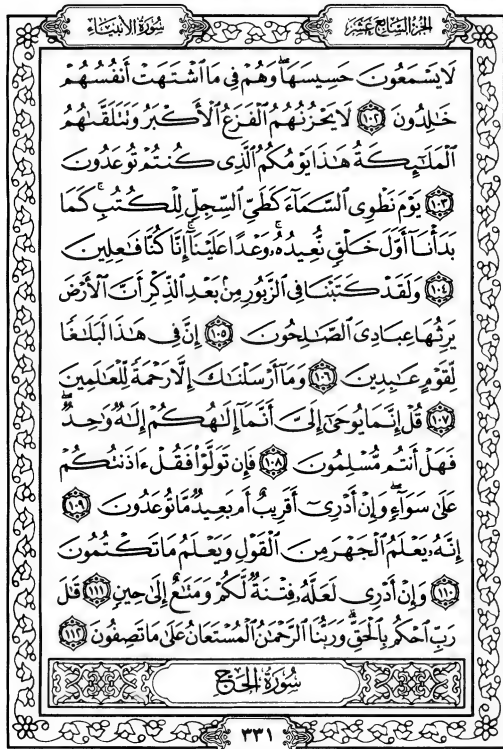 سُورَةُ الأَنبِيَاء
الجُزْءُ السَّابِعُ عَشَرَ
لَا يَسْمَعُونَ حَسِيسَهَا ۖ وَهُمْ فِي مَا ٱشْتَهَتْ أَنفُسُهُمْ
خَٰلِدُونَ ١٠٢ لَا يَحْزُنُهُمُ ٱلْفَزَعُ ٱلْأَكْبَرُ وَتَتَلَقَّىٰهُمُ
ٱلْمَلَٰٓئِكَةُ هَٰذَا يَوْمُكُمُ ٱلَّذِي كُنتُمْ تُوعَدُونَ
١٠٣ يَوْمَ نَطْوِي ٱلسَّمَآءَ كَطَيِّ ٱلسِّجِلِّ لِلْكُتُبِ ۚ كَمَا
بَدَأْنَآ أَوَّلَ خَلْقٍ نُّعِيدُهُۥ ۚ وَعْدًا عَلَيْنَآ ۚ إِنَّا كُنَّا فَٰعِلِينَ
١٠٤ وَلَقَدْ كَتَبْنَا فِي ٱلزَّبُورِ مِنۢ بَعْدِ ٱلذِّكْرِ أَنَّ ٱلْأَرْضَ
يَرِثُهَا عِبَادِيَ ٱلصَّٰلِحُونَ ١٠٥ إِنَّ فِي هَٰذَا لَبَلَٰغًا
لِّقَوْمٍ عَٰبِدِينَ ١٠٦ وَمَآ أَرْسَلْنَٰكَ إِلَّا رَحْمَةً لِّلْعَٰلَمِينَ
١٠٧ قُلْ إِنَّمَا يُوحَىٰٓ إِلَيَّ أَنَّمَآ إِلَٰهُكُمْ إِلَٰهٌ وَٰحِدٌ ۖ
فَهَلْ أَنتُم مُّسْلِمُونَ ١٠٨ فَإِن تَوَلَّوْا۟ فَقُلْ ءَاذَنتُكُمْ
عَلَىٰ سَوَآءٍ ۖ وَإِنْ أَدْرِيٓ أَقَرِيبٌ أَم بَعِيدٌ مَّا تُوعَدُونَ ١٠٩
إِنَّهُۥ يَعْلَمُ ٱلْجَهْرَ مِنَ ٱلْقَوْلِ وَيَعْلَمُ مَا تَكْتُمُونَ
١١٠ وَإِنْ أَدْرِي لَعَلَّهُۥ فِتْنَةٌ لَّكُمْ وَمَتَٰعٌ إِلَىٰ حِينٍ ١١١ قَٰلَ
رَبِّ ٱحْكُم بِٱلْحَقِّ ۗ وَرَبُّنَا ٱلرَّحْمَٰنُ ٱلْمُسْتَعَانُ عَلَىٰ مَا تَصِفُونَ ١١٢
سُورَةُ الحَجِّ
٣٣١